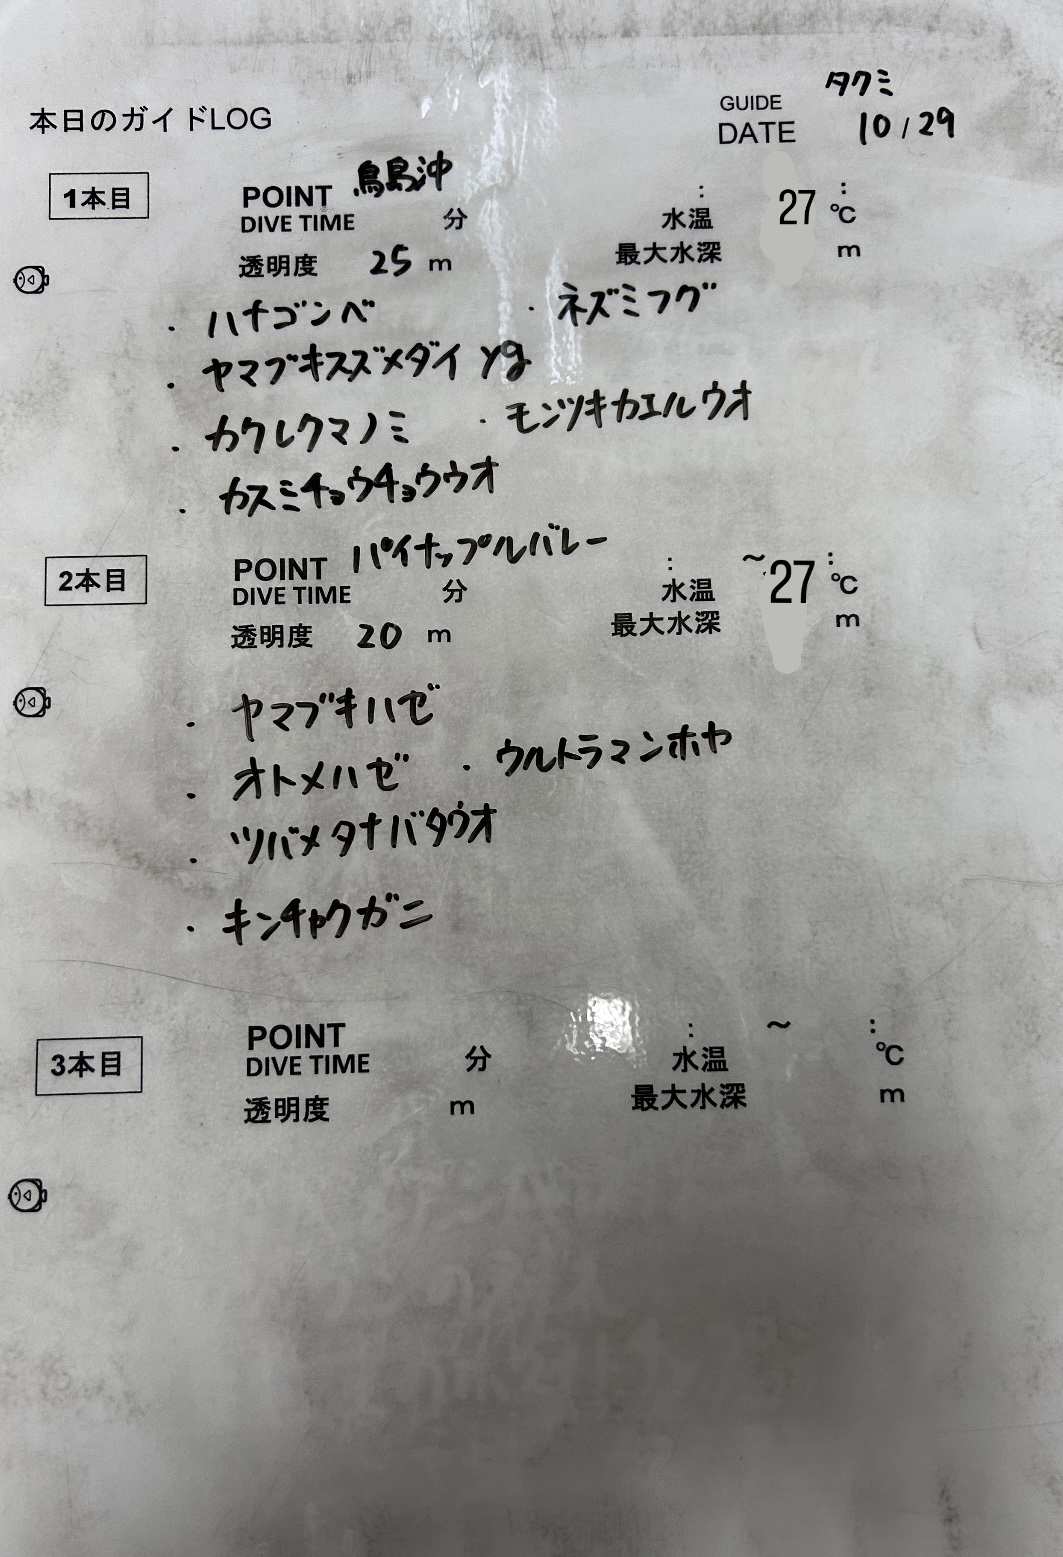 タクミ
本日のガイドLOG GUIDE
DATE 10/29
1本目 POINT 鳥島沖 :  :
DIVE TIME 分 水温 27 ℃
透明度 25 m 最大水深 m
・ハナゴンベ ・ネズミフグ
・ヤマブキスズメダイ yg
・カクレクマノミ ・モンツキカエルウオ
・カスミチョウチョウウオ
2本目 POINT パイナップルバレー : ～ :
DIVE TIME 分 水温 27 ℃
透明度 20 m 最大水深 m
・ヤマブキハゼ
・オトメハゼ ・ウルトラマンホヤ
・ツバメタナバタウオ
・キンチャクガニ
3本目 POINT : ～ :
DIVE TIME 分 水温 ℃
透明度 m 最大水深 m